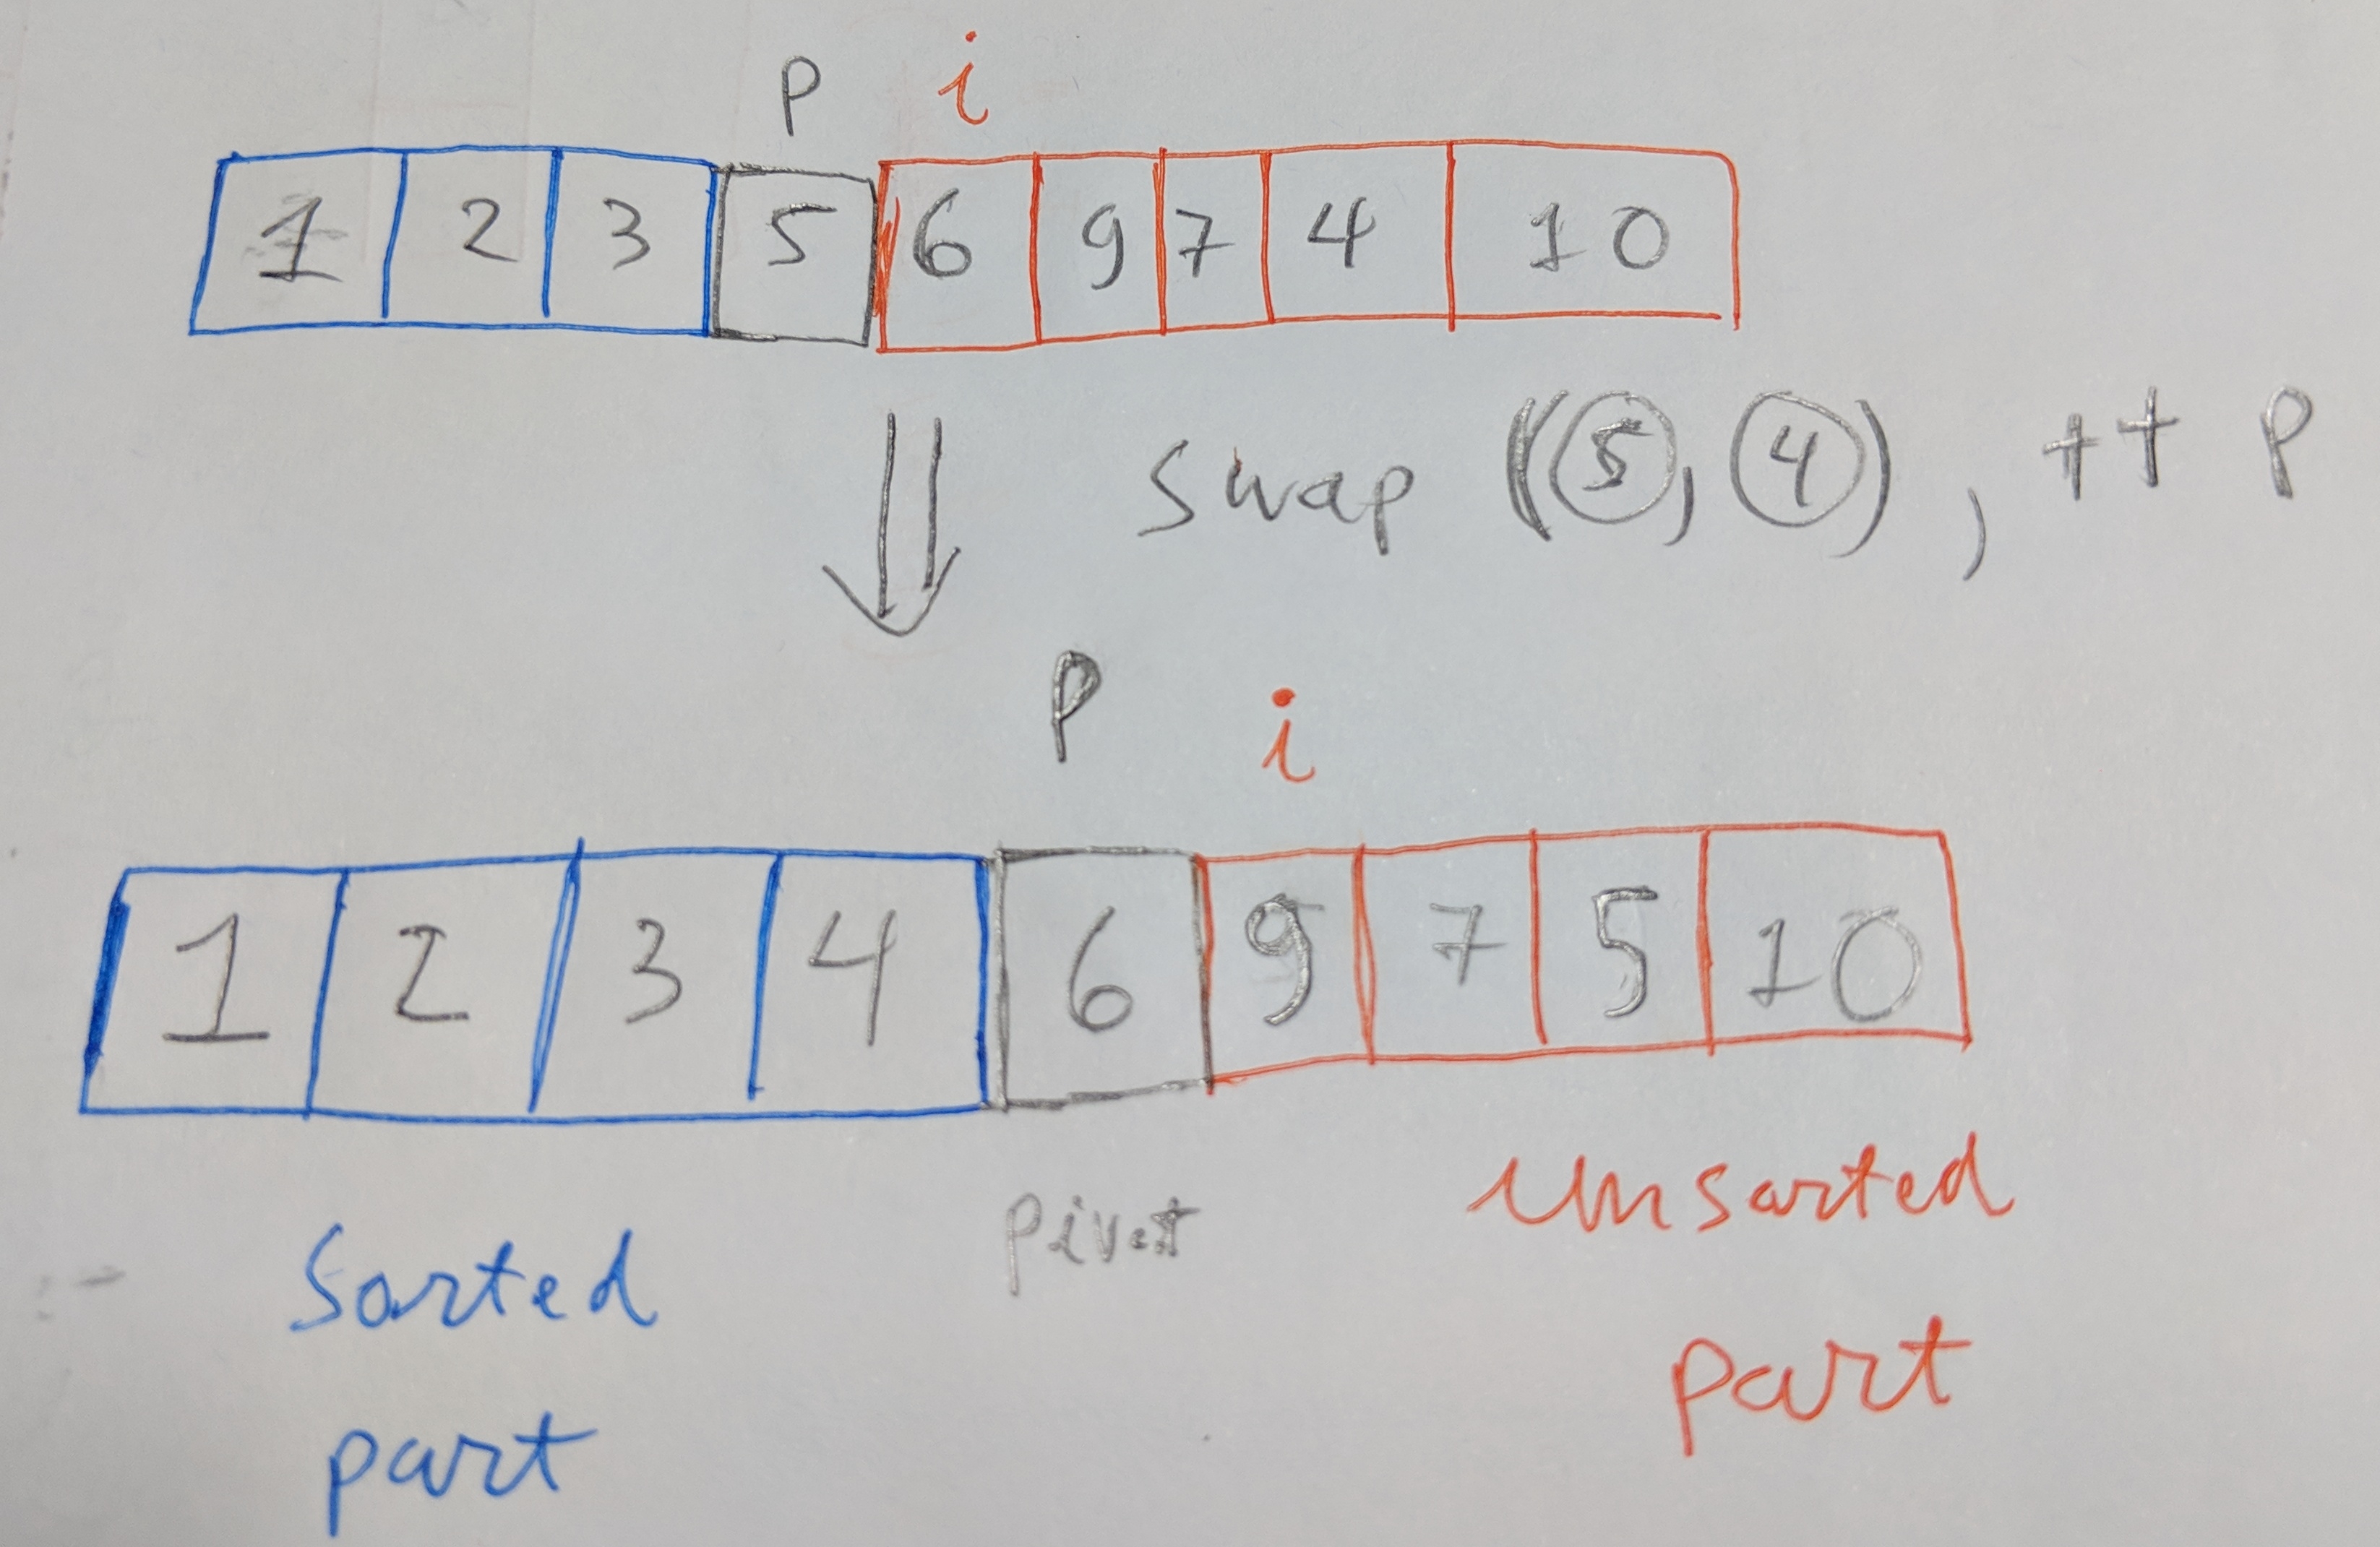 P i
1 2 3 5 6 9 7 4 10
swap (5, 4), ++ P
P i
1 2 3 4 6 9 7 5 10
Sorted part
pivot
unsorted part